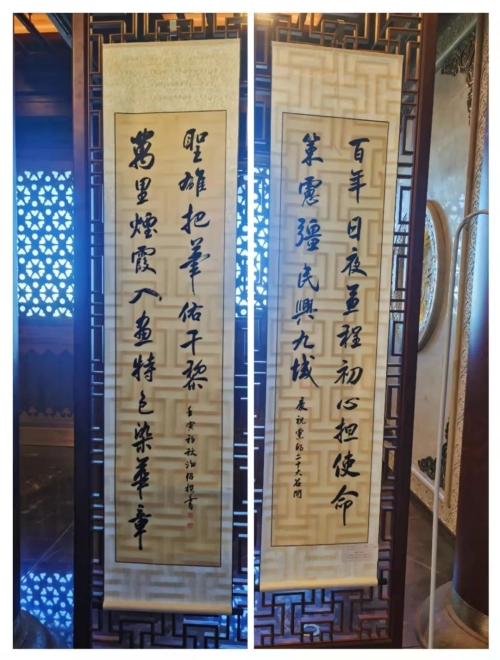 百年日夜兼程初心担使命
策彊民興九域
慶祝黨的二十大召開
萬里煙霞入畫特色染華章
聖雄把佑千黎
壬寅初秋書